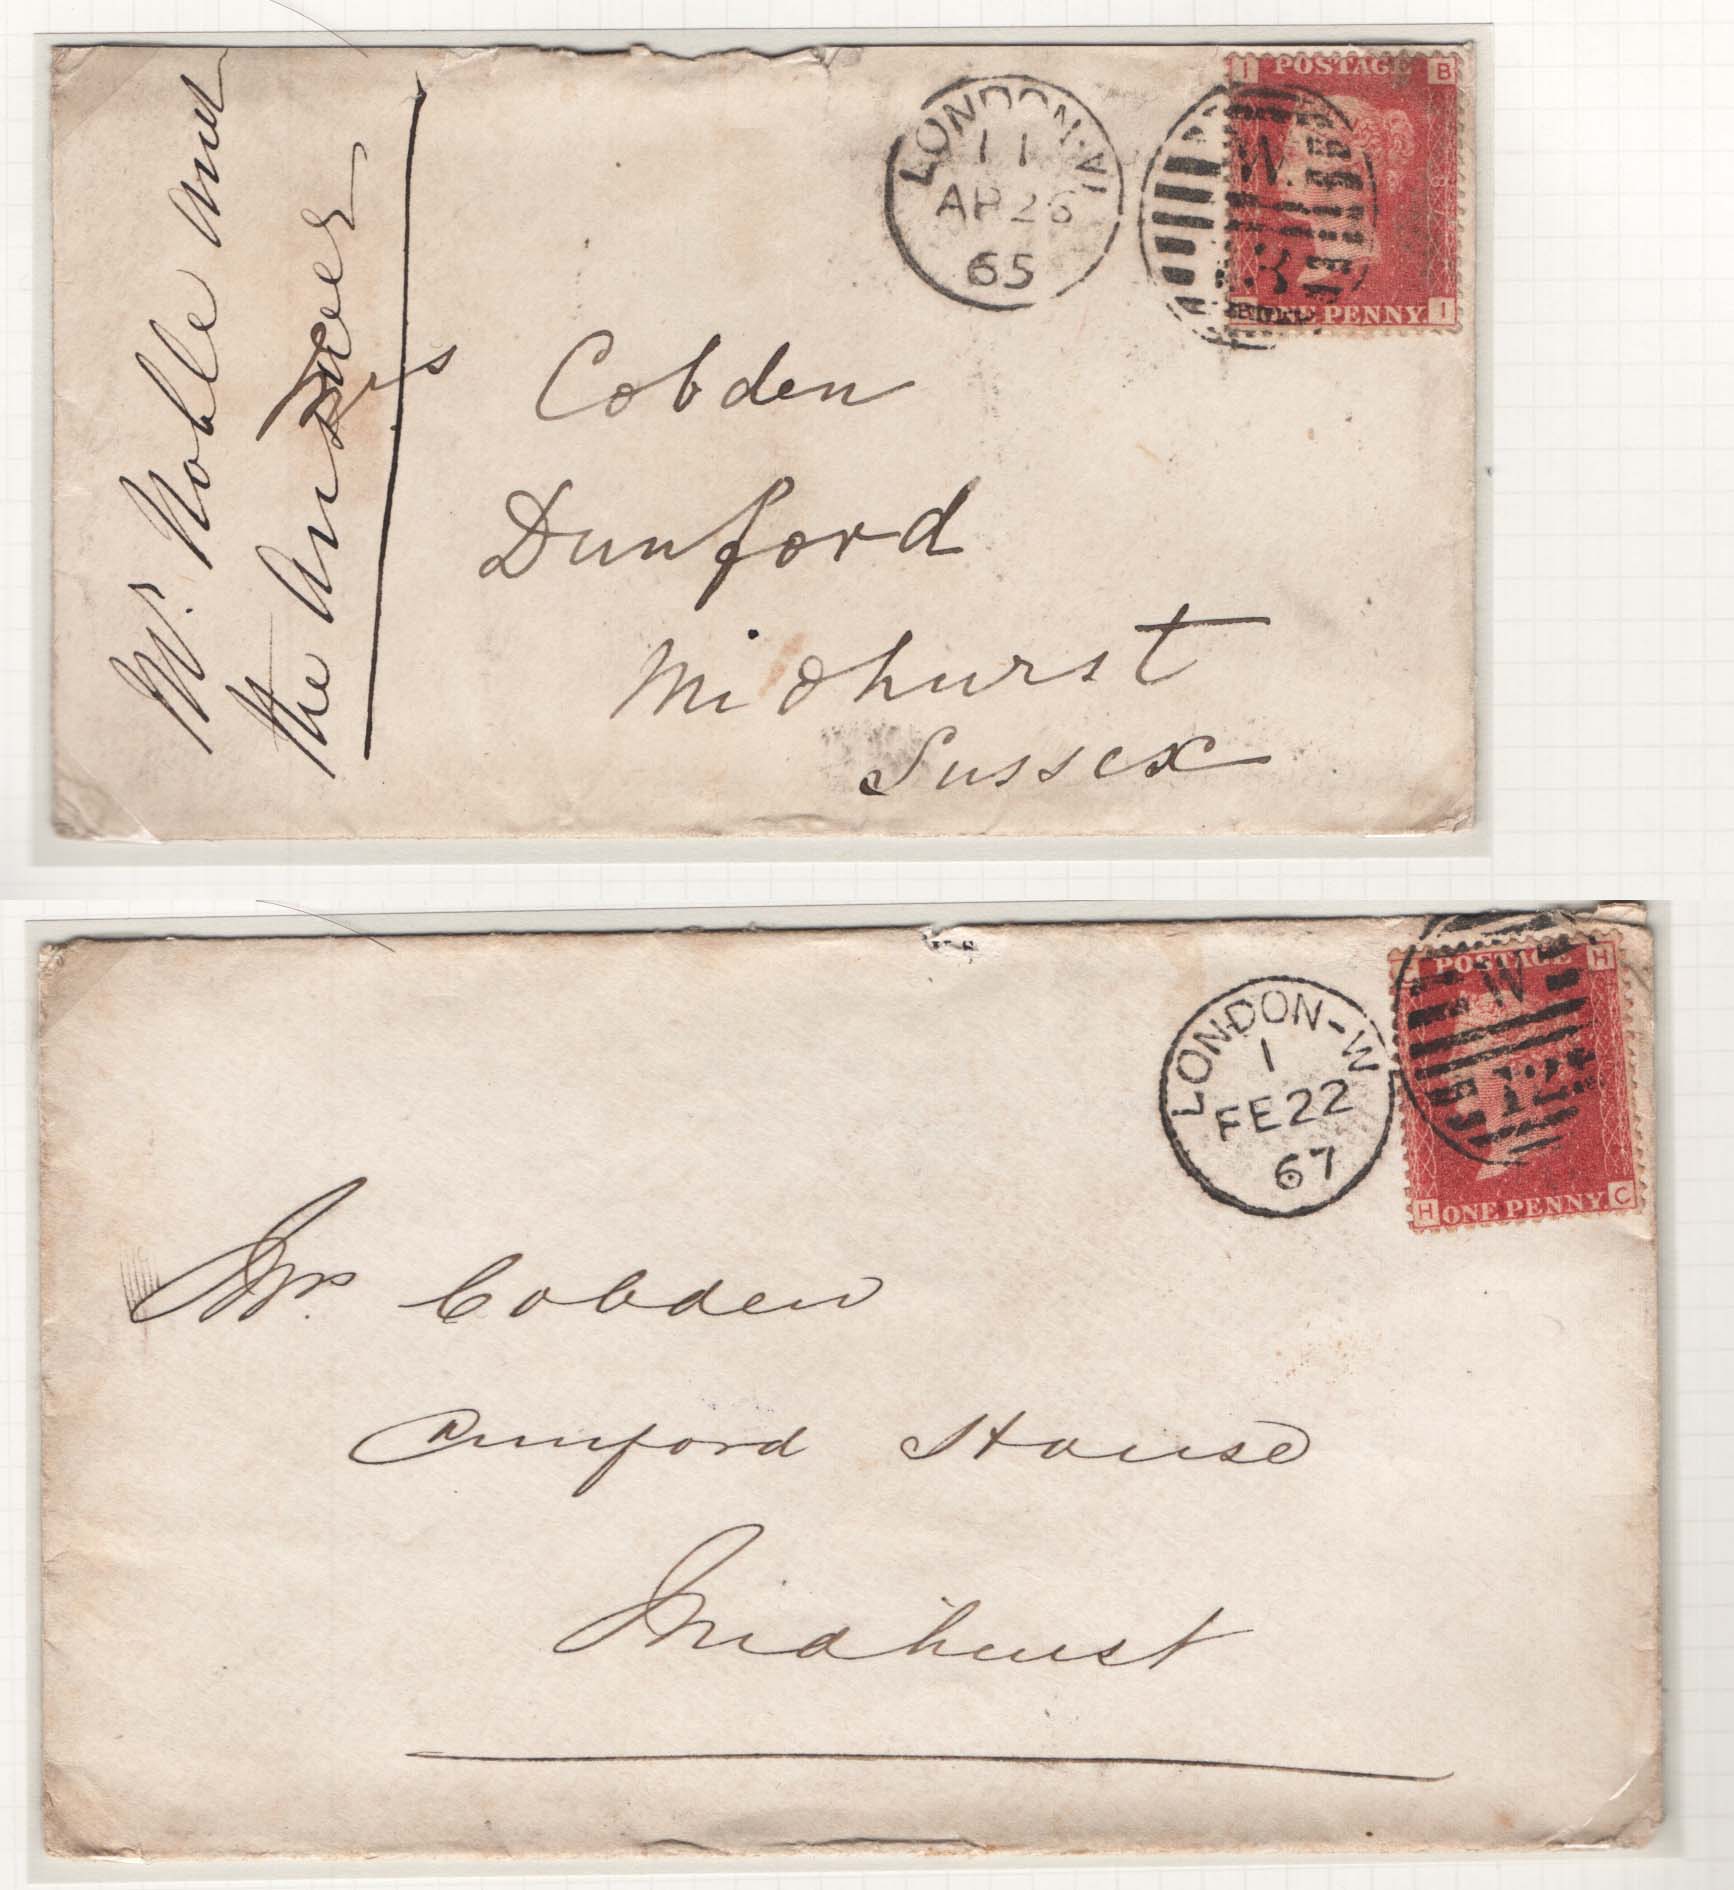 Mr. Noble and
the Answer
Mrs Cobden
Dunford
Midhurst
Sussex
LONDON-W
11
AP 26
65
W
3
I POSTAGE B
B ONE PENNY. I
Mrs. Cobden
Dunford House
Midhurst
LONDON-W
1
FE 22
67
W
12
POSTAGE H
H ONE PENNY. C